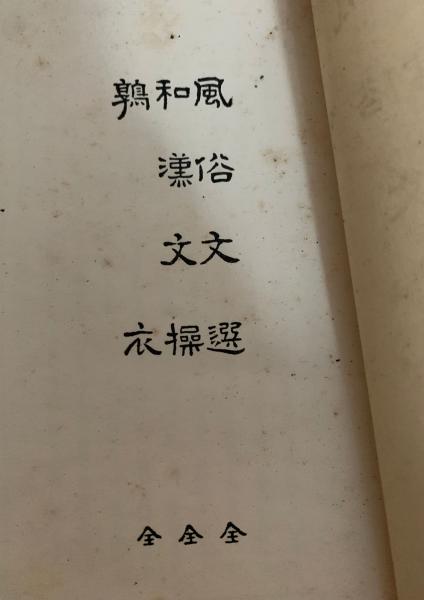 風俗文選 全
和漢文操 全
鶉衣 全